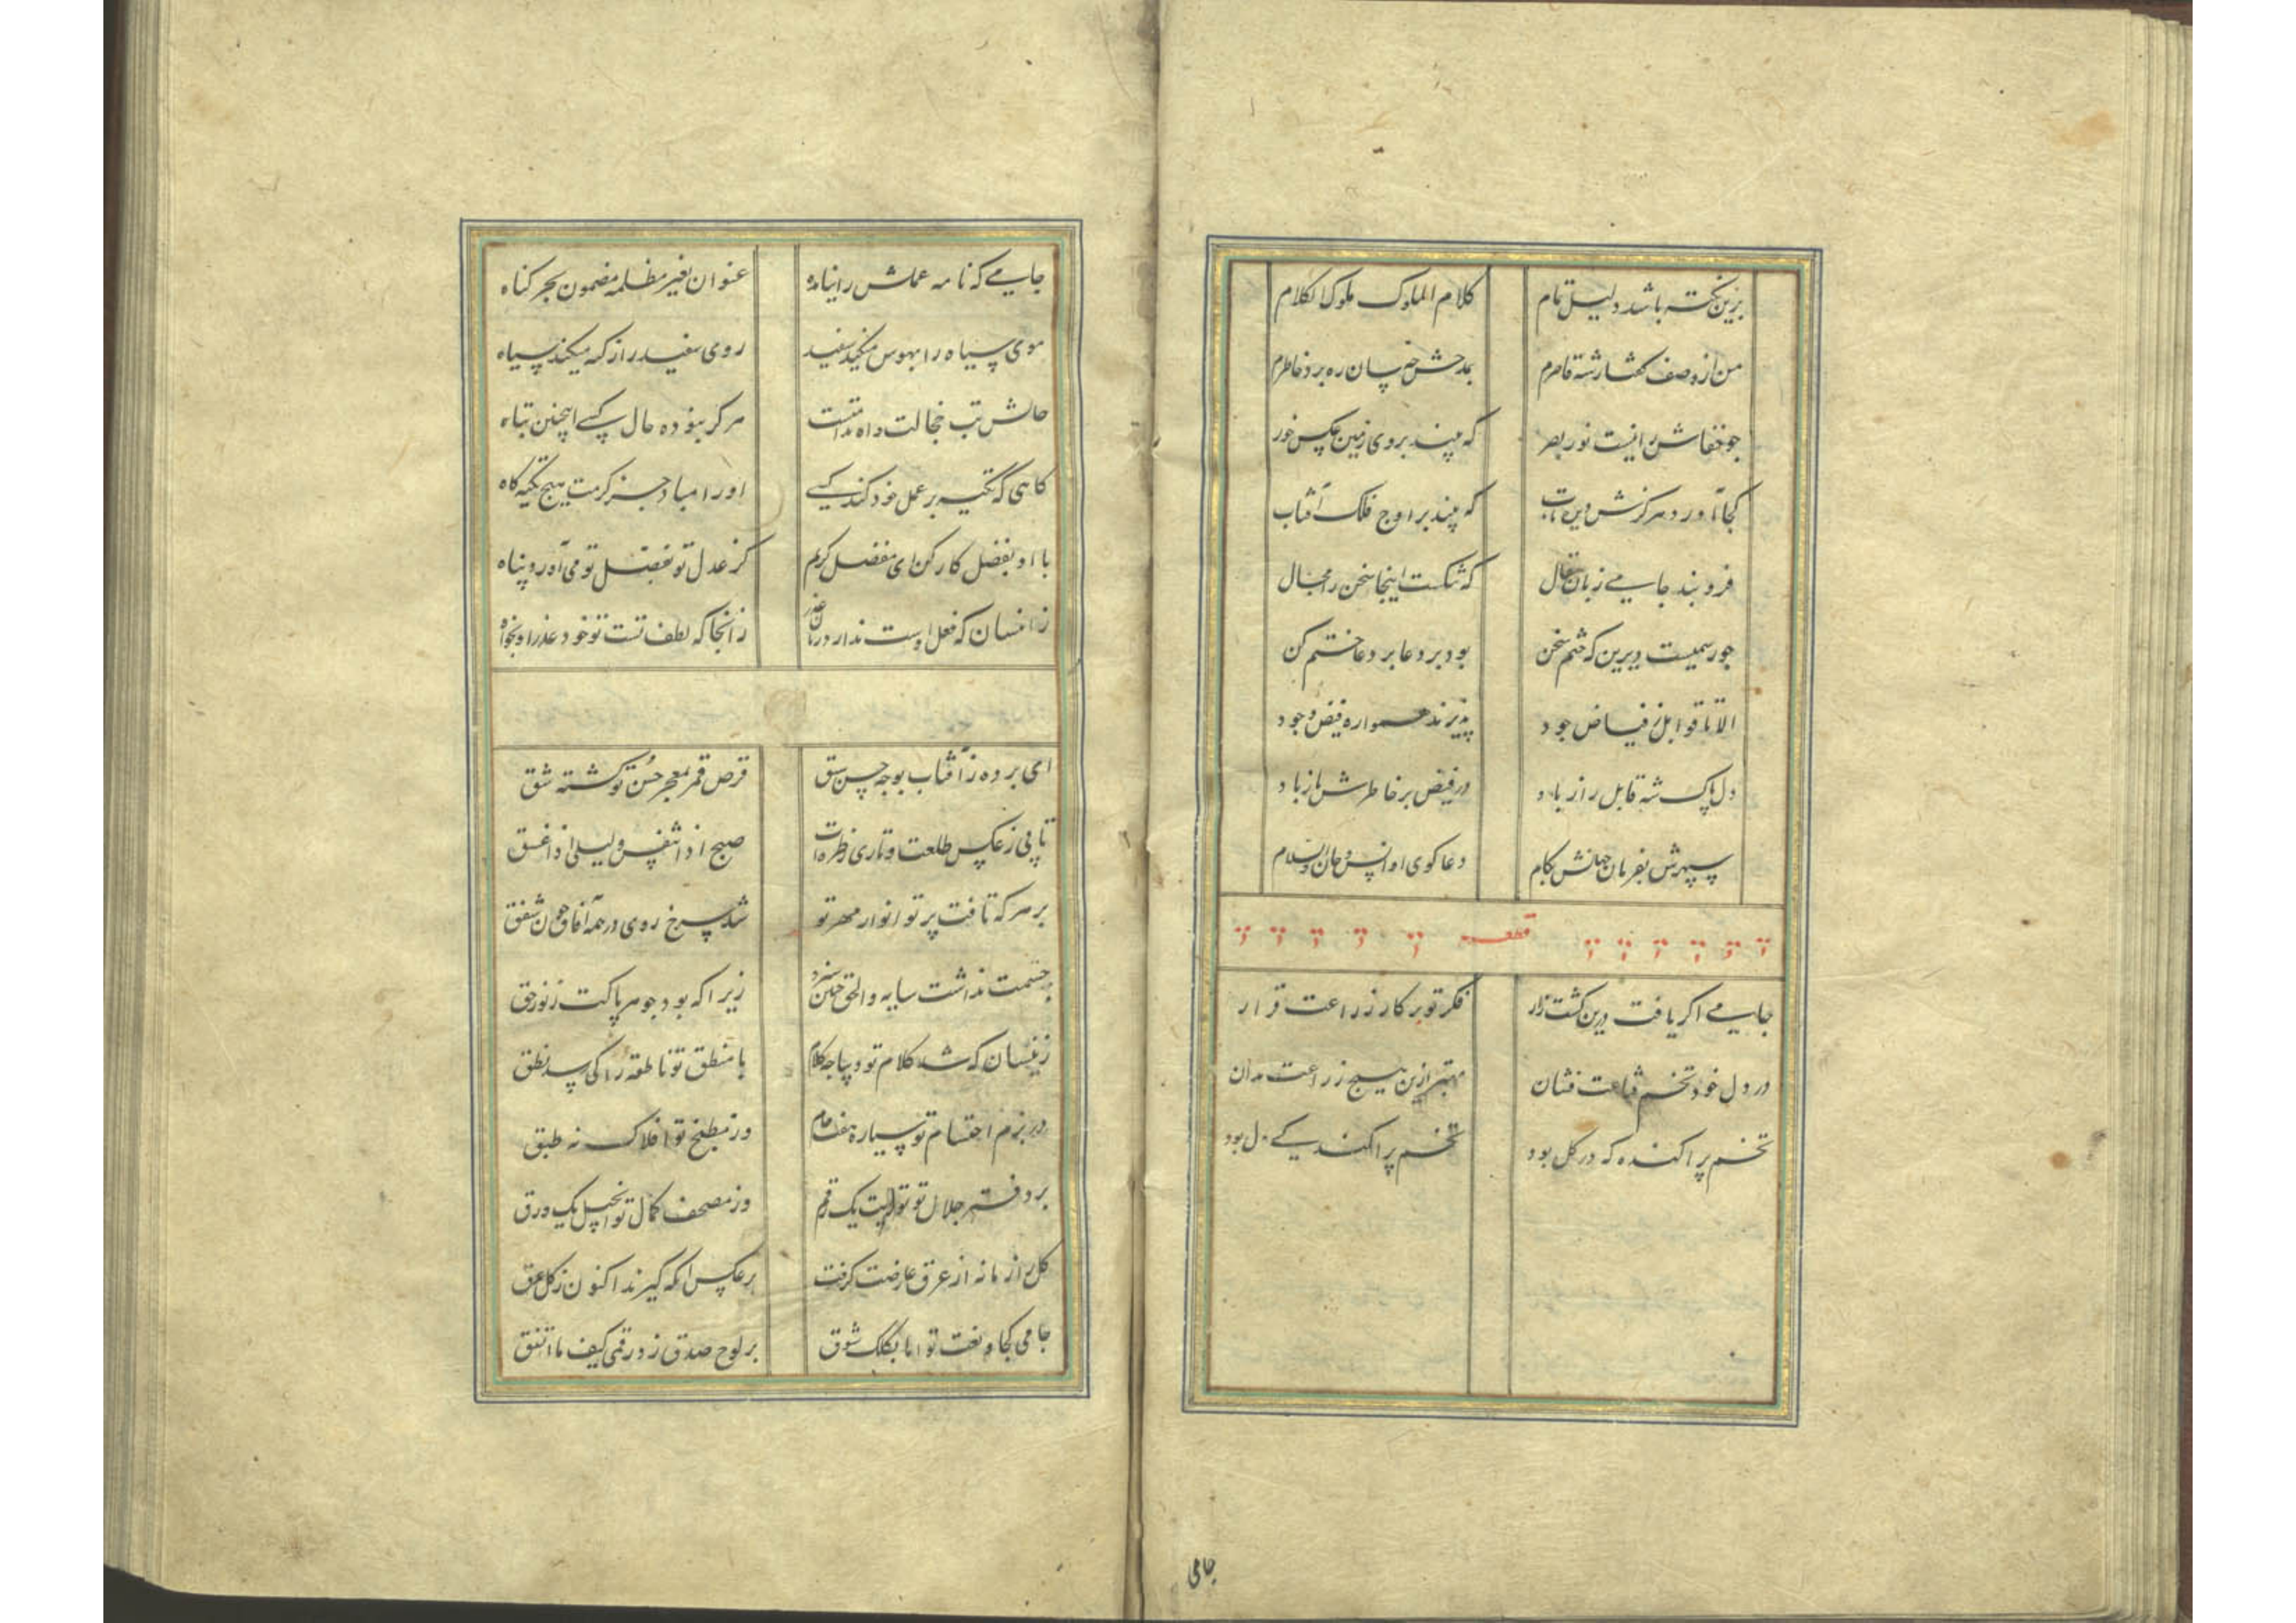 برین نکته باشد دلیل تمام
کلام الملوک ملوک الکلام
من از وصف گفتار شه قاصرم
بمدحش چسان ره برد خاطرم
چو خفاش را نیست نور بصر
که بیند بروی زمین عکس خور
کجا آورد هرگزش دیده تاب
که بیند بر اوج فلک آفتاب
فروبند جامی زبان مقال
که تنگست اینجا سخن را مجال
چو رسمیست دیرین که ختم سخن
بود بر دعا بر دعا ختم کن
الا تا قوابل ز فیاض جود
پذیرند همواره فیض وجود
دل پاک شه قابل راز باد
در فیض بر خاطرش باز باد
سپهرش بفرمان جهانش بکام
دعاگوی او انس و جان والسلام
قطعه
جامی اگر یافت درین کشت زار
فکر تو بر کار زراعت قرار
در دل خود تخم قناعت فشان
بهتر ازین هیچ زراعت مدان
تخم پراکنده که در گل بود
تخم پراکندگی دل بود
جامی
جامی که نامه عملش را نیامده
عنوان بغیر مظلمه مضمون بجز گناه
موی سیاه را بهوس میکند سفید
روی سفید را ز گنه میکند سیاه
حالش تب خجالت و آه ندامتست
هرگز نبوده حال کسی اینچنین تباه
گاهی که تکیه بر عمل خود کند کسی
او را مباد جز کرمت هیچ تکیه گاه
با او بفضل کار کن ای مفضل کریم
کز عدل تو بفضل تو می آورد پناه
زانسان که فعل اوست ندارد زبان عذر
زانجا که لطف تست تو خود عذر او بخواه
ای برده ز آفتاب بوجه حسن سبق
قرص قمر بمعجز حسن تو گشته شق
تابی ز عکس طلعت و تاری ز طره ات
صبح اذا تنفس و لیل اذا غسق
بر هر که تافت پرتو انوار مهر تو
شد سرخ روی در همه آفاق چون شفق
جسمت نداشت سایه و الحق چنین سزد
زیرا که بود جوهر پاکت ز نور حق
زینسان که شد کلام تو دیباجه کلام
با منطق تو ناطقه را کی رسد نطق
در بزم احتشام تو سیاره هفت جام
وز مطبخ تو افلاک نه طبق
بر دفتر جلال تو توریت یک رقم
وز مصحف کمال تو انجیل یک ورق
گل را زمانه از عرق عارضت گرفت
بر عکس آنکه گیرند اکنون ز گل عرق
جامی کجا و نعت تو اما بکلک شوق
بر لوح صدق زد رقمی کیف ما اتفق